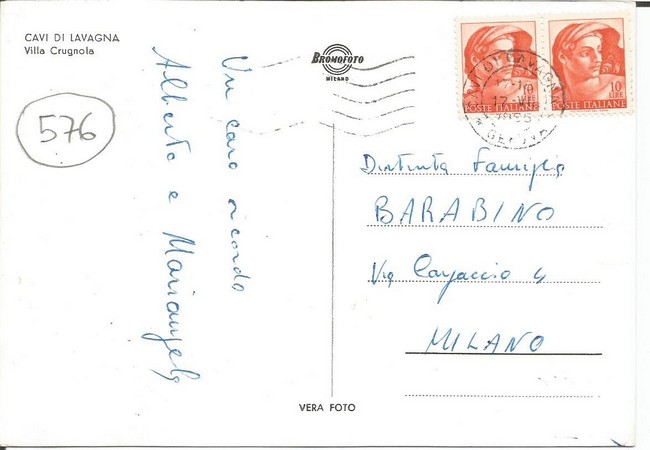 CAVI DI LAVAGNA
Villa Crugnola
576
Un caro ricordo
Alberto e Mariangela
BROMOFOTO
MILANO
10 LIRE
POSTE ITALIANE
10 LIRE
POSTE ITALIANE
DI LAVAGNA
GENOVA
Distinta Famiglia
BARABINO
Via 4
MILANO
VERA FOTO